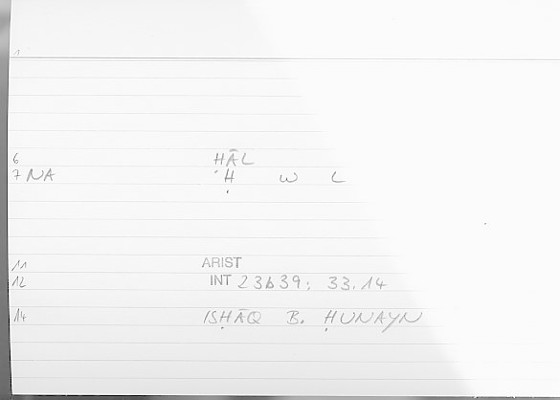 1
6 ḤĀL
7 NA Ḥ W L
11 ARIST
12 INT 23b39; 33.14
14 ISḤĀQ B. ḤUNAYN